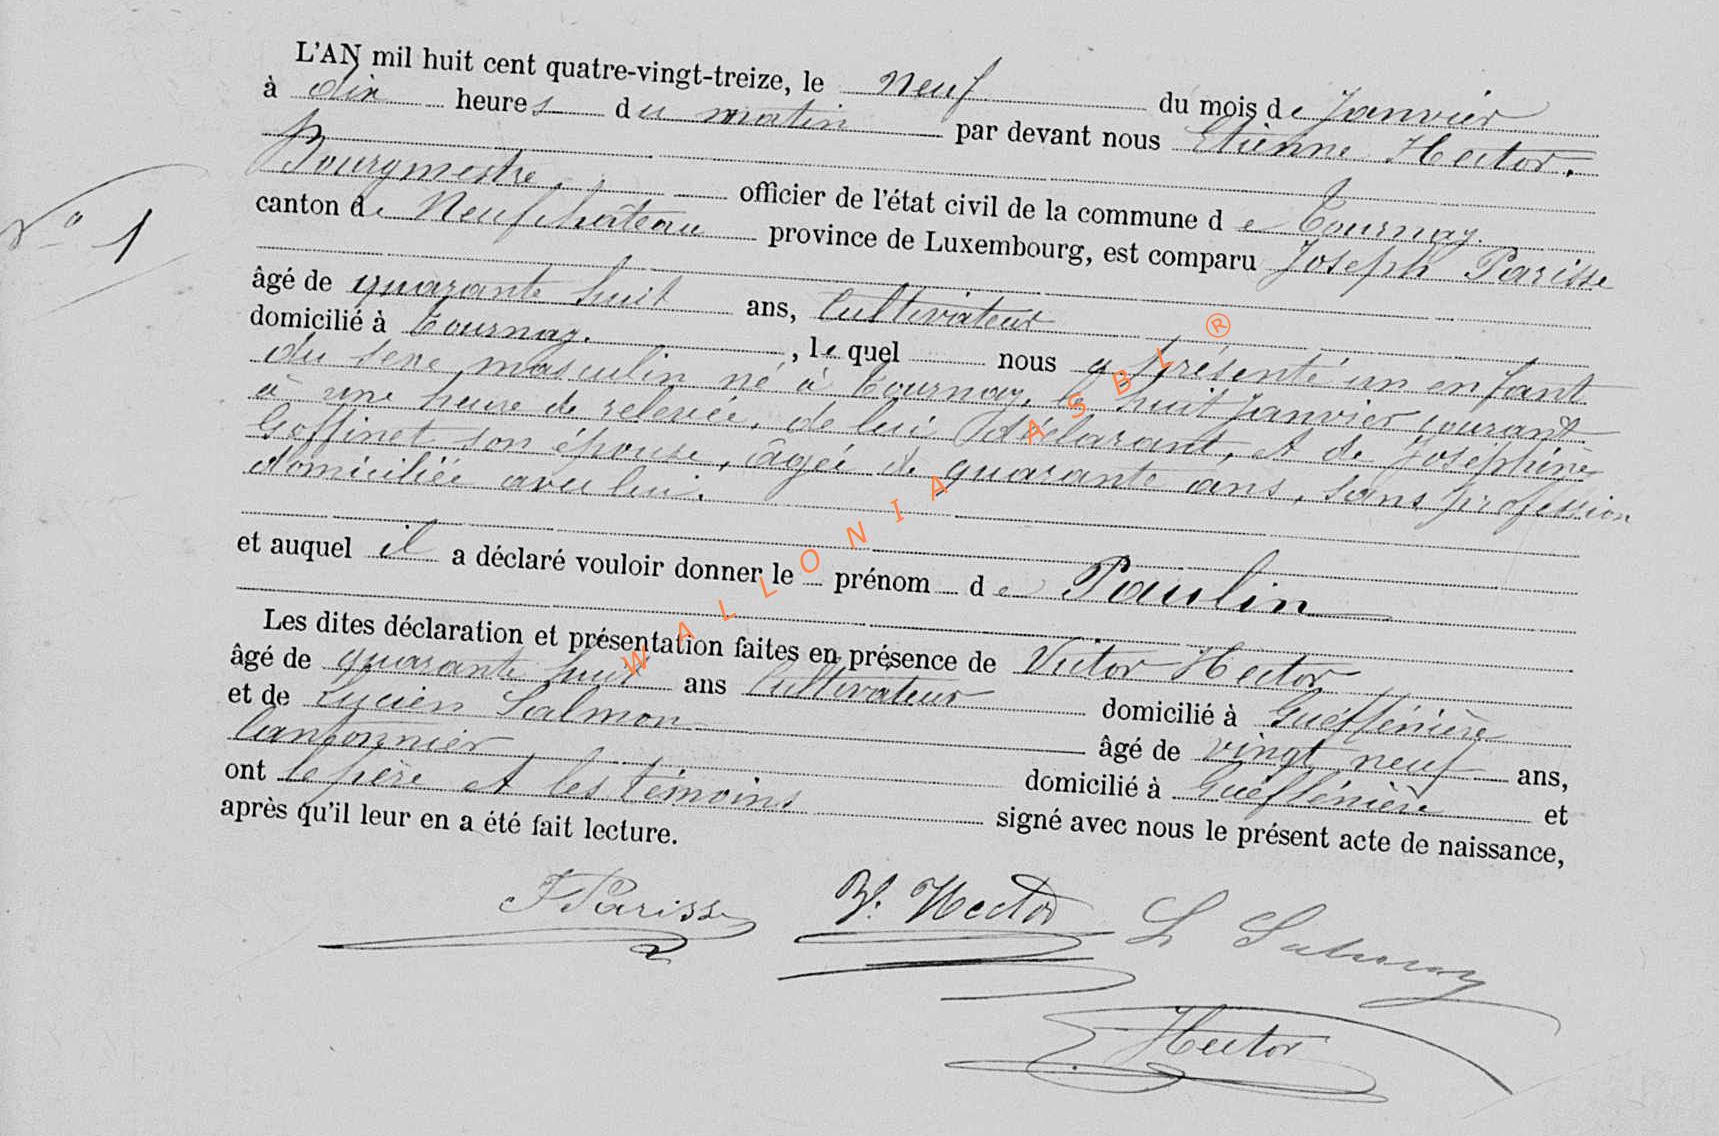 L'AN mil huit cent quatre-vingt-treize, le neuf du mois de Janvier
à dix heures du matin par devant nous Etienne Hector,
Bourgmestre officier de l'état civil de la commune de Tournay.
canton de Neufchâteau province de Luxembourg, est comparu Joseph Parisse
N° 1
âgé de quarante huit ans, Cultivateur
domicilié à Tournay. , lequel nous a présenté un enfant
du sexe masculin né à Tournay, le huit Janvier courant
à une heure de relevée, de lui déclarant, et de Joséphine
Goffinet son épouse, âgée de quarante ans, sans profession
domiciliée avec lui.
et auquel il a déclaré vouloir donner le prénom de Paulin
Les dites déclaration et présentation faites en présence de Victor Hector
âgé de quarante huit ans Cultivateur domicilié à
et de Lucien Salmon âgé de vingt neuf ans,
Cantonnier domicilié à et
ont le père et les témoins signé avec nous le présent acte de naissance,
après qu'il leur en a été fait lecture.
J Parisse V. Hector L Salmon
Hector
WALLONIA ASBL ®